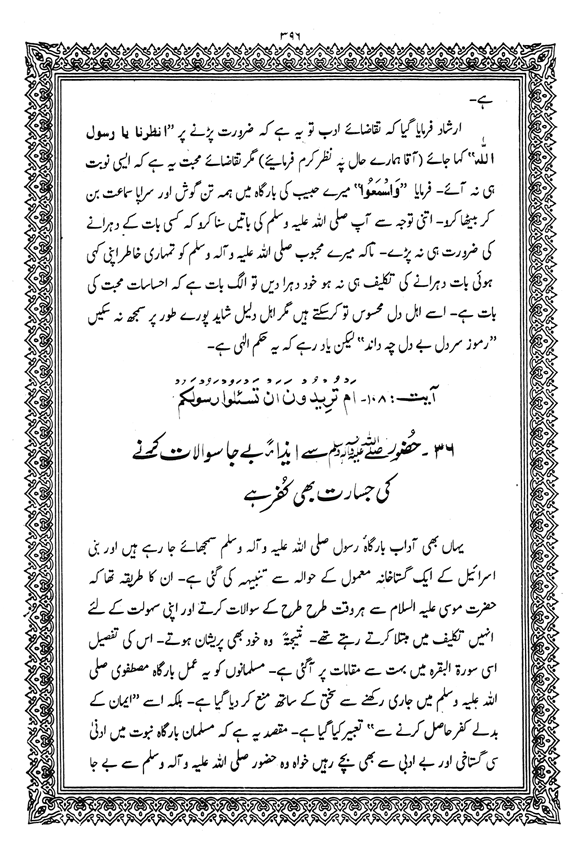 ۳۹۶
ہے-
ارشاد فرمایا گیا کہ تقاضائے ادب تو یہ ہے کہ ضرورت پڑنے پر "انظرنا یا رسول
اللہ" کہا جائے (آقا ہمارے حال پہ نظر کرم فرمایئے) مگر تقاضائے محبت یہ ہے کہ ایسی نوبت
ہی نہ آئے- فرمایا "وَاسْمَعُوا" میرے حبیب کی بارگاہ میں ہمہ تن گوش اور سراپا سماعت بن
کر بیٹھا کرو- اتنی توجہ سے آپ صلی اللہ علیہ وسلم کی باتیں سنا کرو کہ کسی بات کے دہرانے
کی ضرورت ہی نہ پڑے- تاکہ میرے محبوب صلی اللہ علیہ و آلہ وسلم کو تمہاری خاطر اپنی کہی
ہوئی بات دہرانے کی تکلیف ہی نہ ہو خود دہرا دیں تو الگ بات ہے کہ احساسات محبت کی
بات ہے- اسے اہل دل محسوس تو کرسکتے ہیں مگر اہل دلیل شاید پورے طور پر سمجھ نہ سکیں
"رموز سر دل بے دل چہ داند" لیکن یاد رہے کہ یہ حکم الٰہی ہے-
آیت: ۱۰۸- ام تریدون ان تسئلوا رسولکم
۳۶- حضور صلی اللہ علیہ وسلم سے ایذاءً بے جا سوالات کرنے
کی جسارت بھی کفر ہے
یہاں بھی آداب بارگاہ رسول صلی اللہ علیہ و آلہ وسلم سمجھائے جا رہے ہیں اور بنی
اسرائیل کے ایک گستاخانہ معمول کے حوالہ سے تنبیہہ کی گئی ہے- ان کا طریقہ تھا کہ
حضرت موسی علیہ السلام سے ہر وقت طرح طرح کے سوالات کرتے اور اپنی سہولت کے لئے
انہیں تکلیف میں مبتلا کرتے رہتے تھے- نتیجۃً وہ خود بھی پریشان ہوتے- اس کی تفصیل
اسی سورۃ البقرہ میں بہت سے مقامات پر آگئی ہے- مسلمانوں کو یہ عمل بارگاہ مصطفوی صلی
اللہ علیہ وسلم میں جاری رکھنے سے سختی کے ساتھ منع کر دیا گیا ہے- بلکہ اسے "ایمان کے
بدلے کفر حاصل کرنے سے" تعبیر کیا گیا ہے- مقصد یہ ہے کہ مسلمان بارگاہ نبوت میں ادنیٰ
سی گستاخی اور بے ادبی سے بھی بچے رہیں خواہ وہ حضور صلی اللہ علیہ و آلہ وسلم سے بے جا